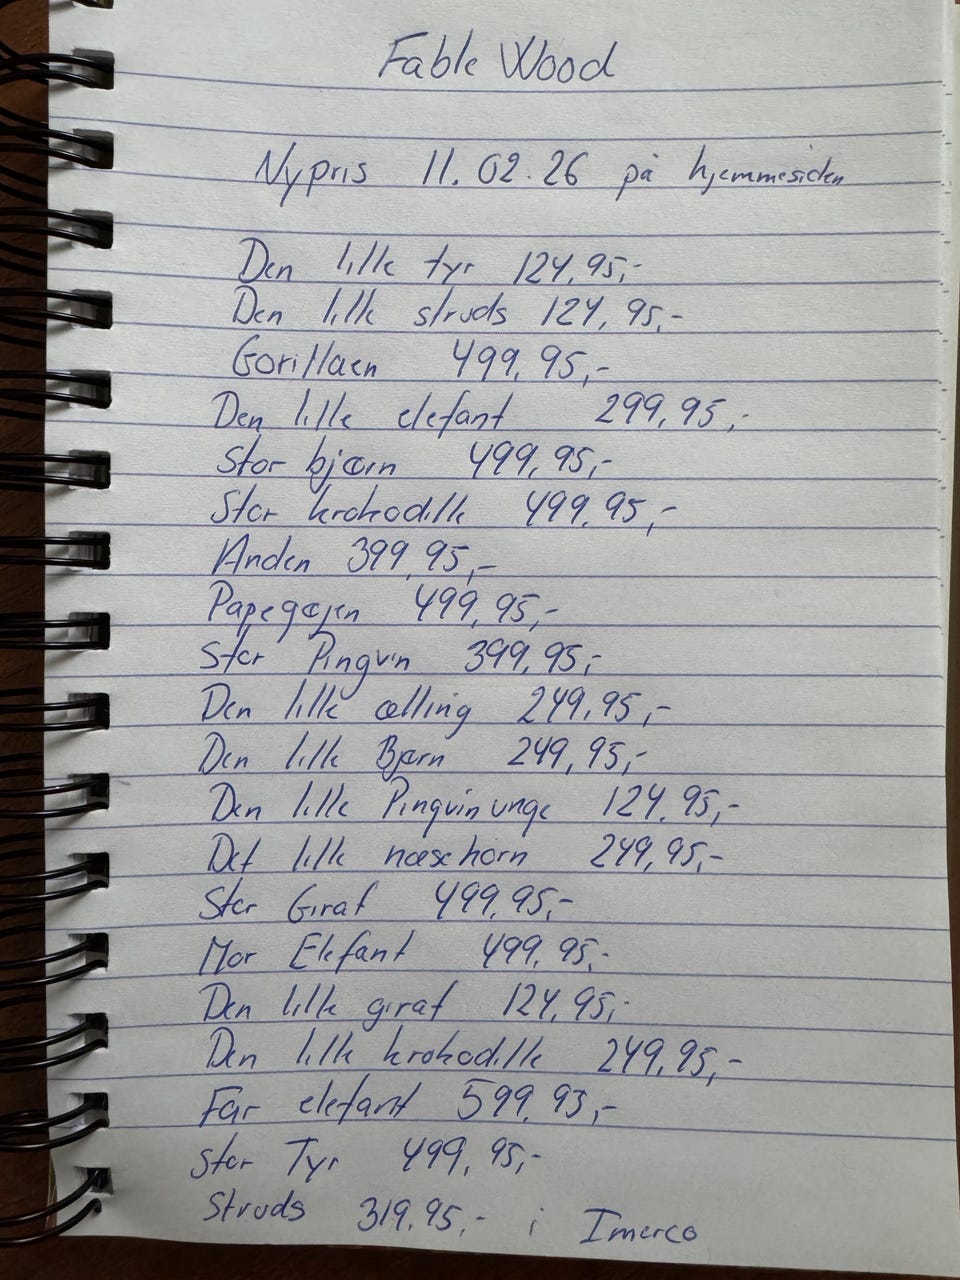 Fable Wood
Nypris 11.02.26 på hjemmesiden
Den lille tyr 124,95,-
Den lille struds 124,95,-
Gorillaen 499,95,-
Den lille elefant 299,95,-
Stor bjørn 499,95,-
Stor krokodille 499,95,-
Anden 399,95,-
Papegøjen 499,95,-
Stor Pingvin 399,95,-
Den lille ælling 249,95,-
Den lille Bjørn 249,95,-
Den lille Pingvin unge 124,95,-
Det lille næsehorn 249,95,-
Stor Giraf 499,95,-
Mor Elefant 499,95,-
Den lille giraf 124,95,-
Den lille krokodille 249,95,-
Far elefant 599,93,-
Stor Tyr 499,95,-
Struds 319,95,- i Imerco